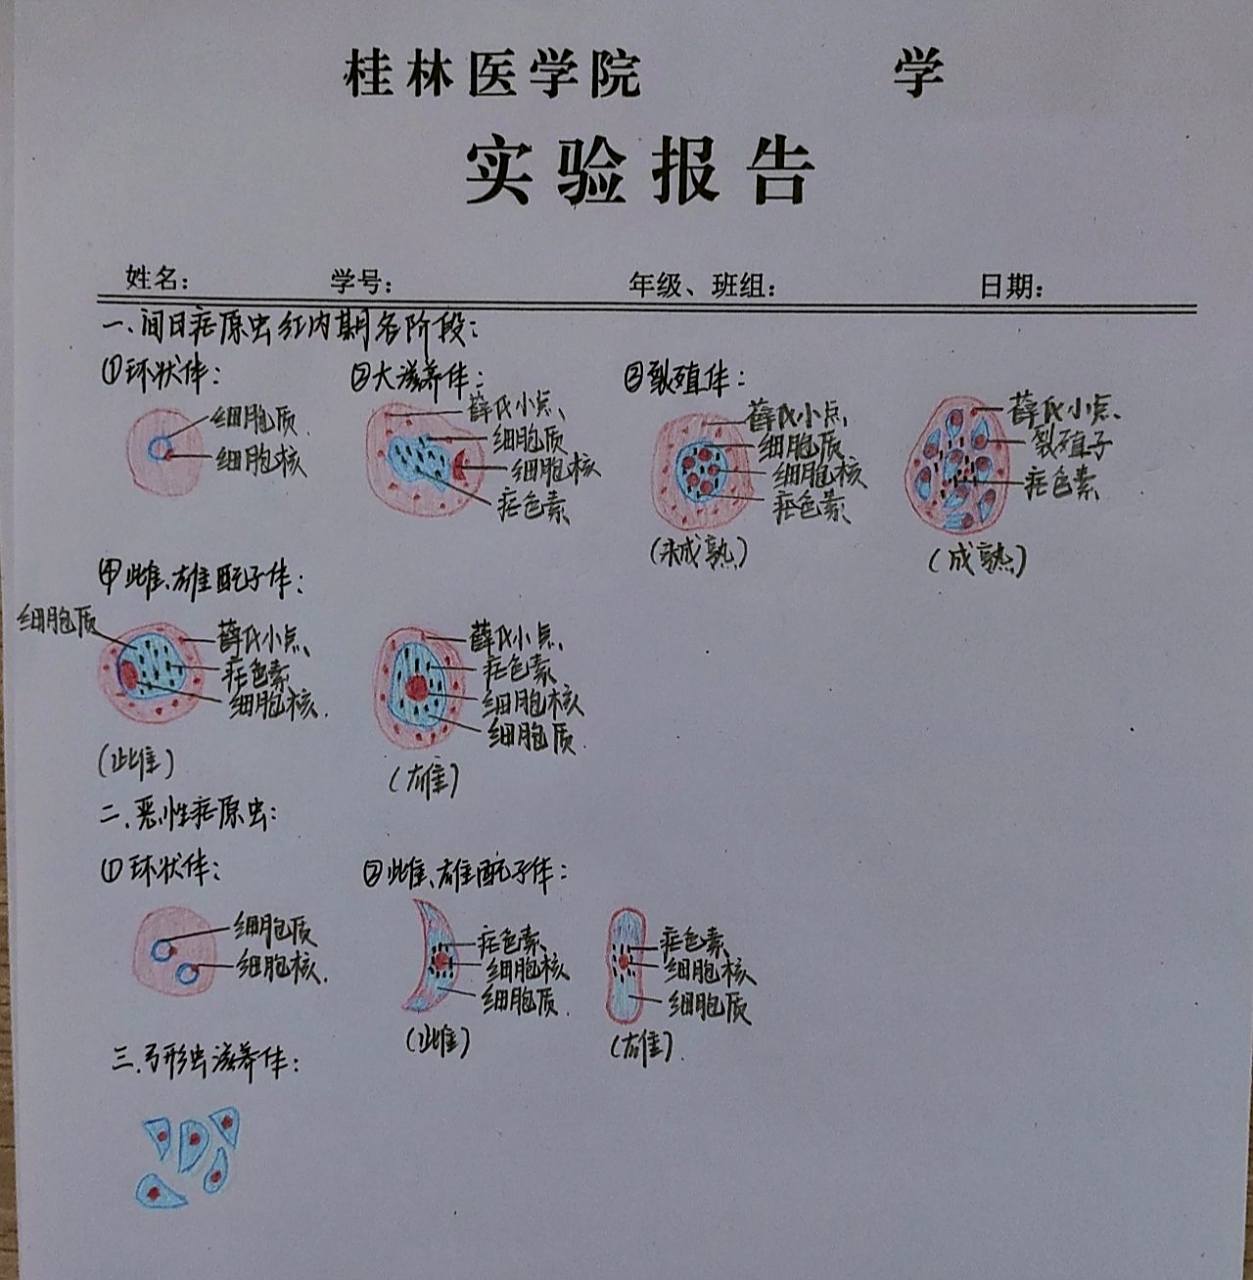 桂林医学院 学
实验报告
姓名： 学号： 年级、班组： 日期：
一.间日疟原虫红内期各阶段：
①环状体： ②大滋养体： ③裂殖体：
细胞质
细胞核
薛氏小点
细胞质
细胞核
疟色素
薛氏小点
细胞质
细胞核
疟色素
(未成熟)
薛氏小点
裂殖子
疟色素
(成熟)
④雌、雄配子体：
细胞质
薛氏小点
疟色素
细胞核
(雌)
薛氏小点
疟色素
细胞核
细胞质
(雄)
二.恶性疟原虫：
①环状体： ②雌、雄配子体：
细胞质
细胞核
疟色素
细胞核
细胞质
(雌)
疟色素
细胞核
细胞质
(雄)
三.弓形虫滋养体：